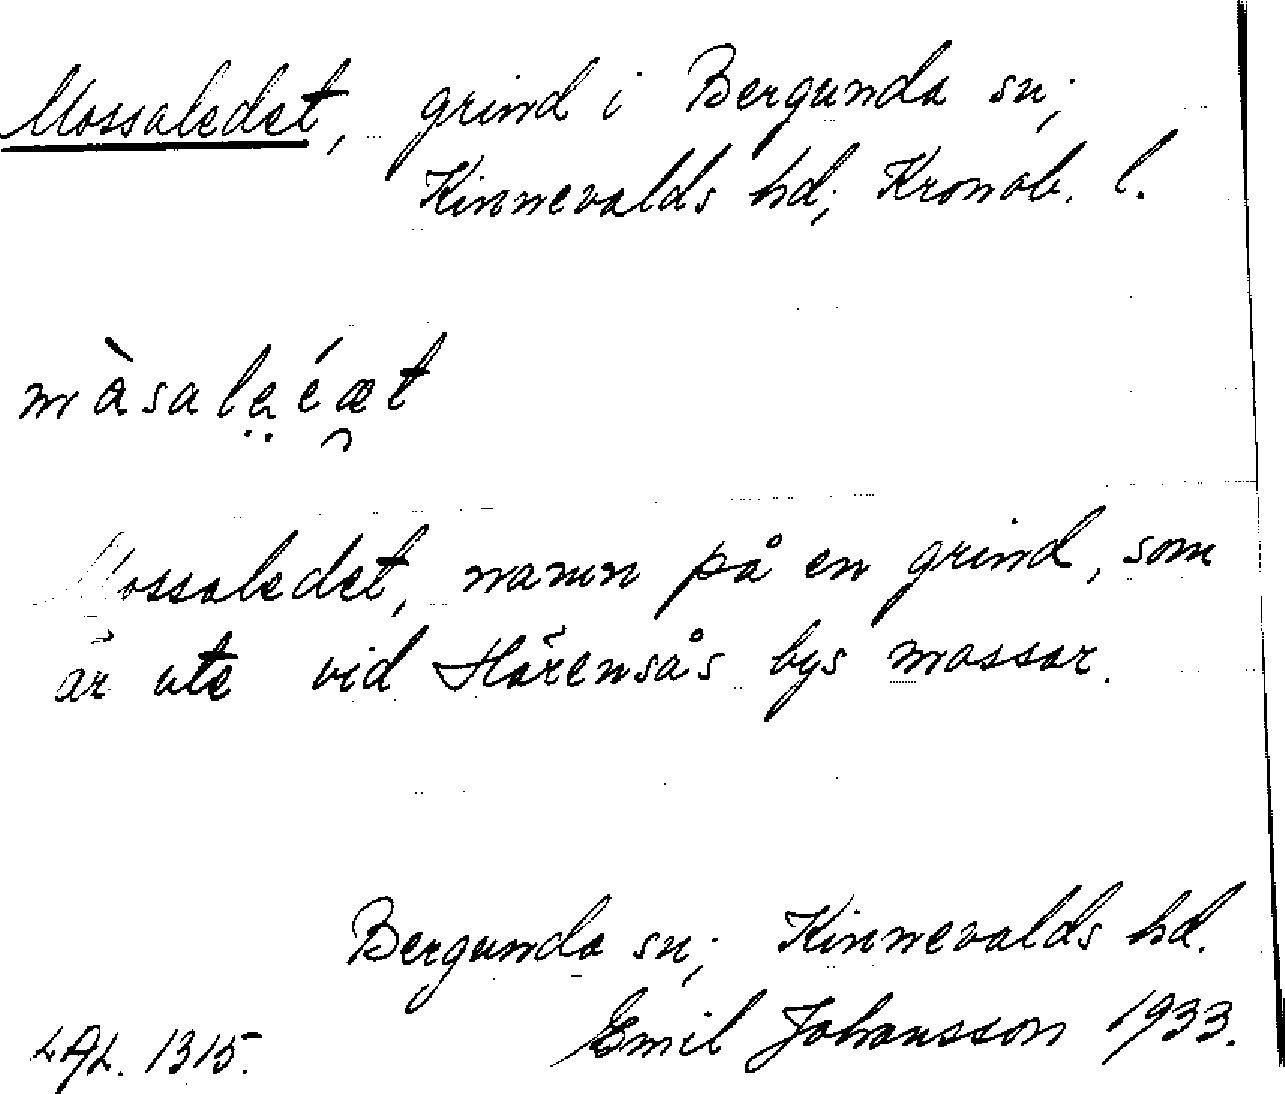 Mossaledet, grind i Bergunda sn;
Kinnevalds hd; Kronob. l.
Mossaledet, namn på en grind, som
är ute vid Härensås bys mossar.
Bergunda sn; Kinnevalds hd.
Emil Johansson 1933.
LAL. 1315.